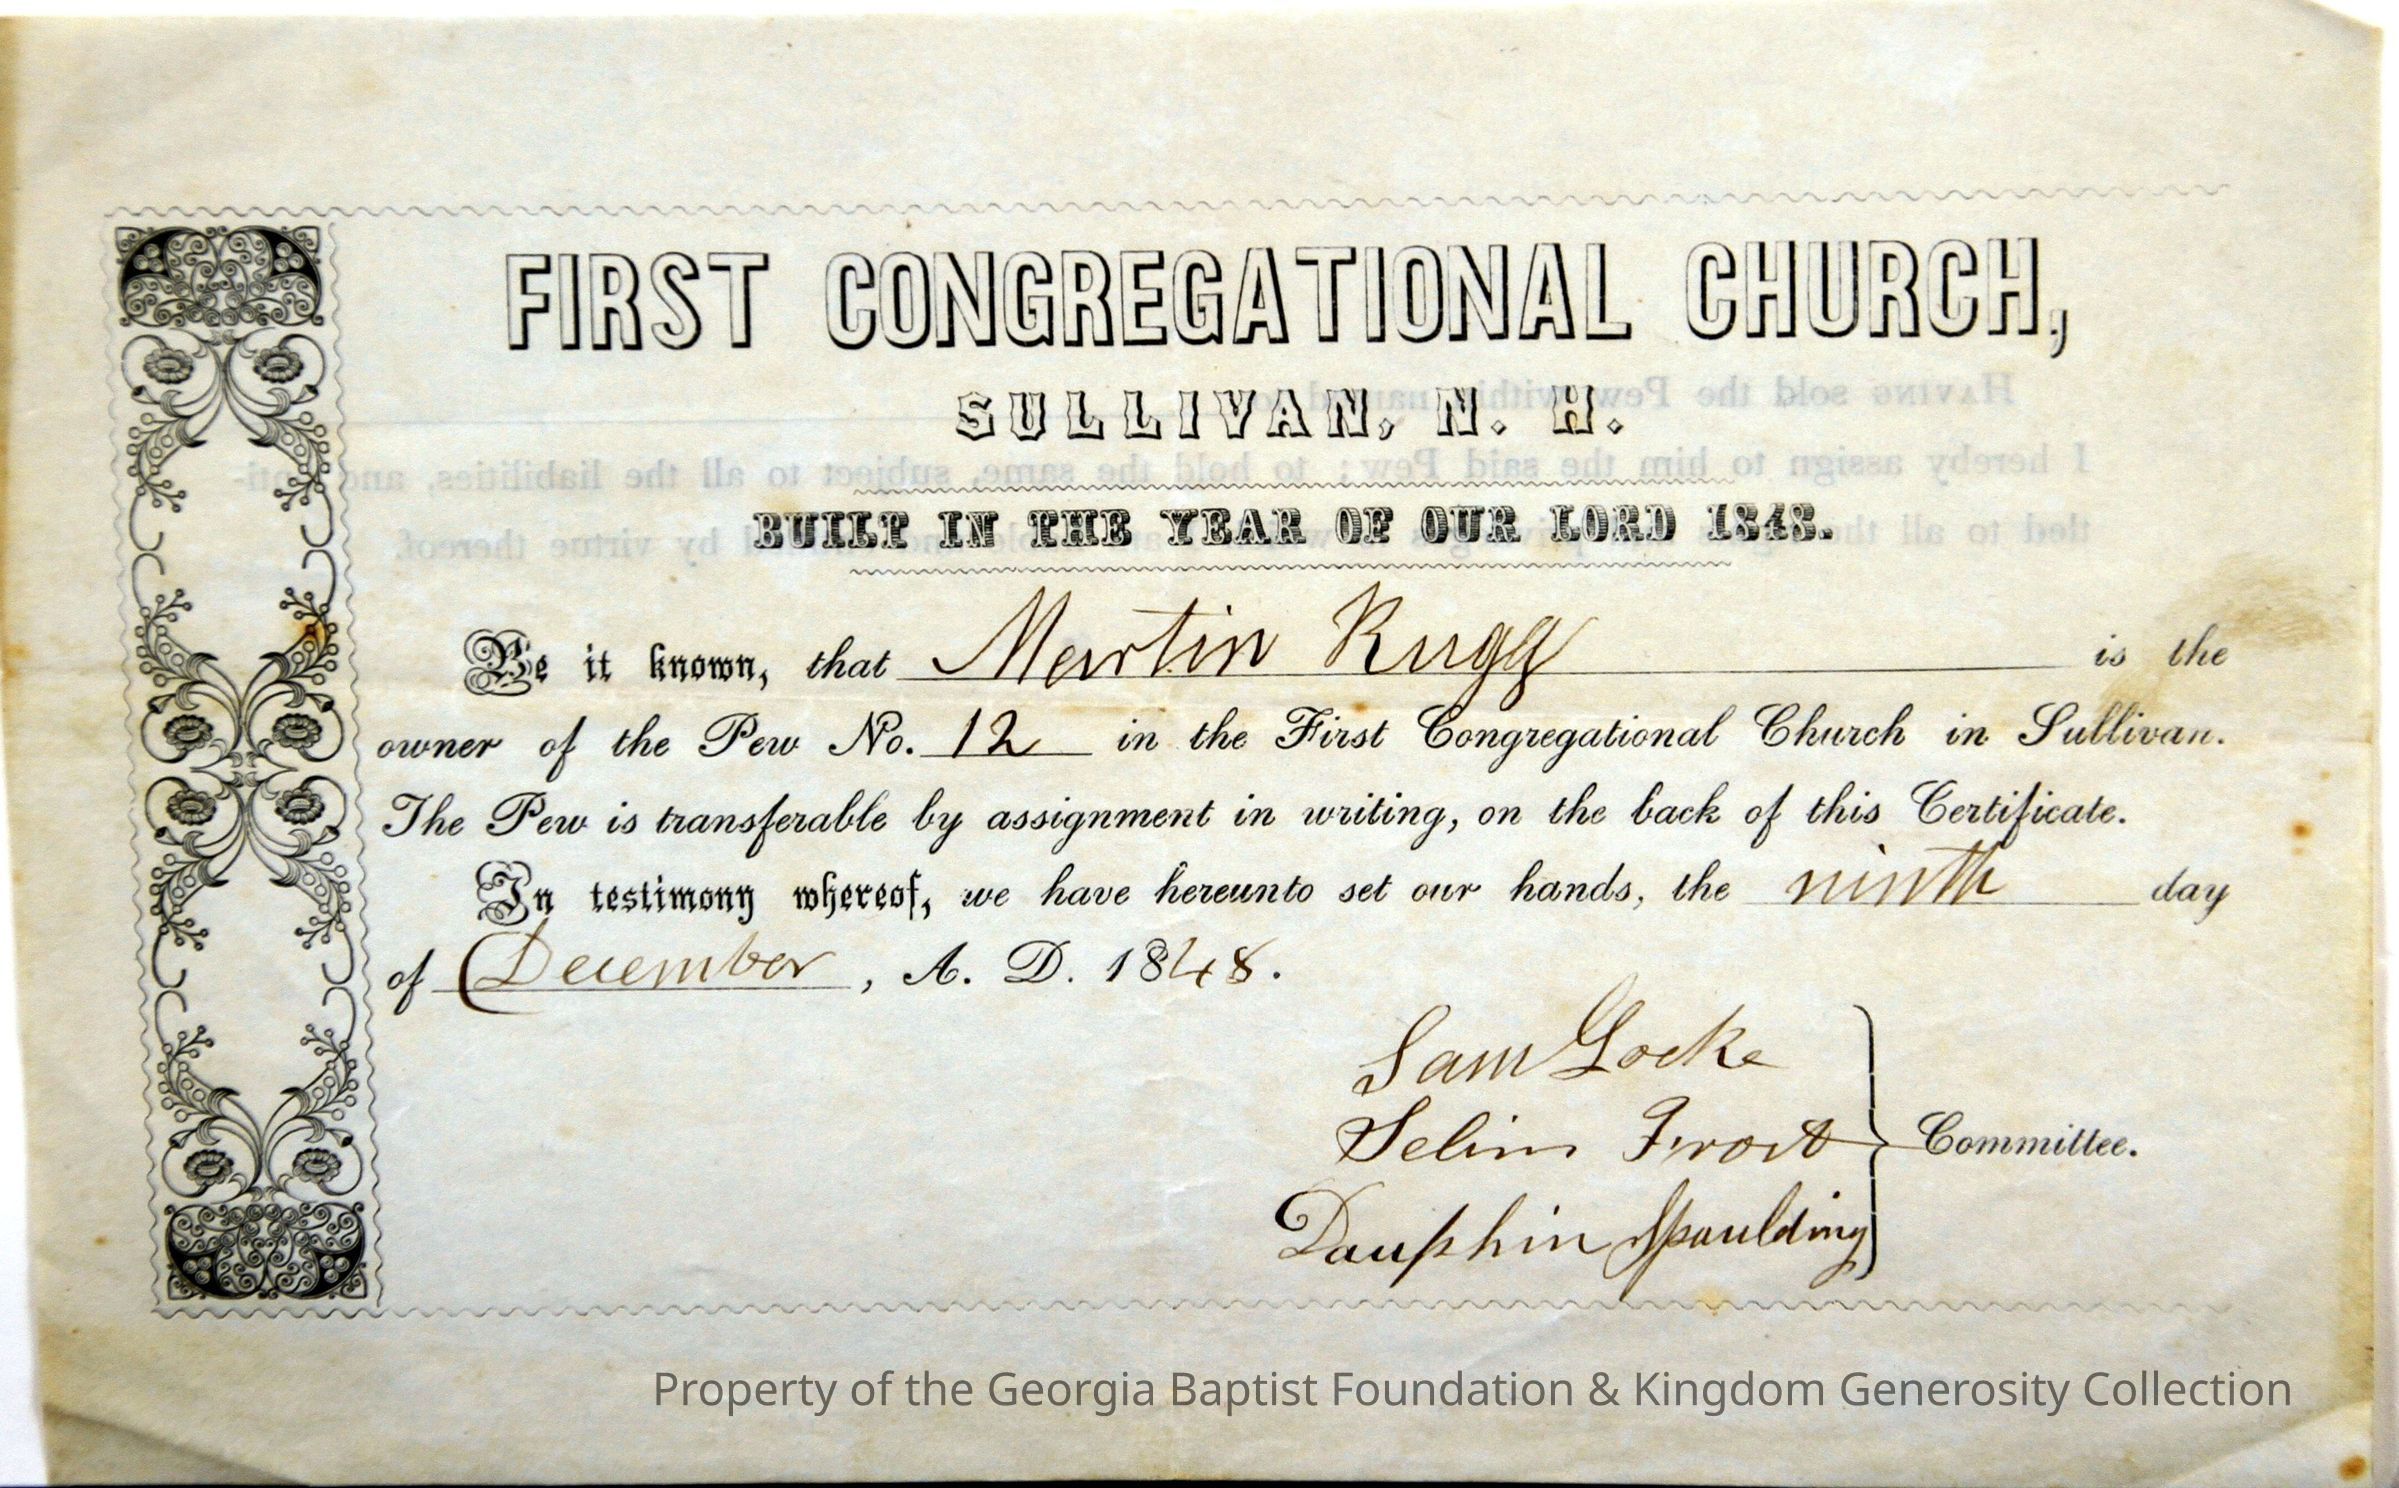 FIRST CONGREGATIONAL CHURCH,
SULLIVAN, N. H.
BUILT IN THE YEAR OF OUR LORD 1848.
Be it known, that Martin Rugg is the
owner of the Pew No. 12 in the First Congregational Church in Sullivan.
The Pew is transferable by assignment in writing, on the back of this Certificate.
In testimony whereof, we have hereunto set our hands, the ninth day
of December, A. D. 1848.
Sam Locke
Selim Frost
Committee.
Dauphin Spaulding
Property of the Georgia Baptist Foundation & Kingdom Generosity Collection